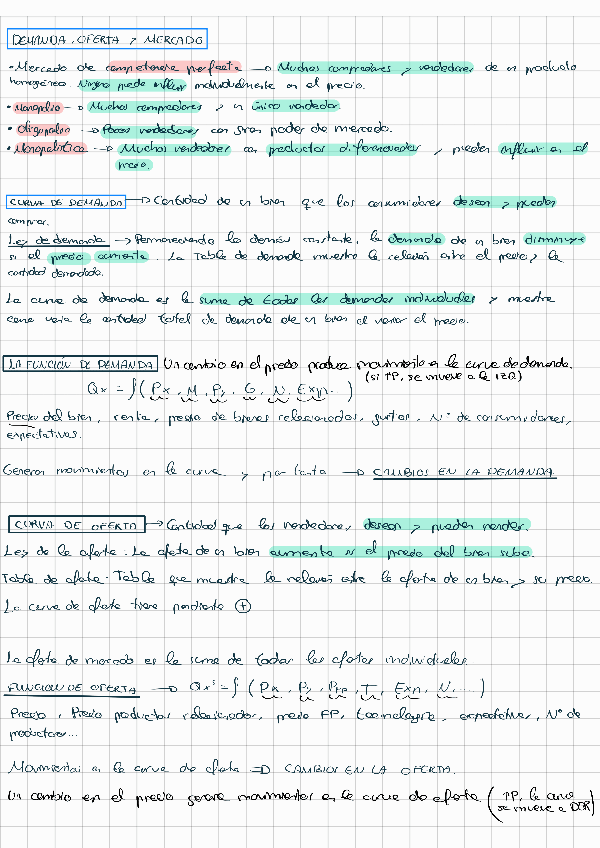 DEMANDA, OFERTA Y MERCADO
• Mercado de competencia perfecta → Muchos compradores y vendedores de un producto
homogéneo. Ninguno puede influir individualmente en el precio.
• Monopolio → Muchos compradores y un único vendedor.
• Oligopolio → Pocos vendedores con gran poder de mercado.
• Monopolística → Muchos vendedores con productos diferenciados, y pueden influir en el
precio.
CURVA DE DEMANDA → Cantidad de un bien que los consumidores desean y pueden
comprar.
Ley de demanda → Permaneciendo lo demás constante, la demanda de un bien disminuye
si el precio aumenta. La Tabla de demanda muestra la relación entre el precio y la
cantidad demandada.
La curva de demanda es la suma de todas las demandas individuales y muestra
como varía la cantidad total de demanda de un bien al variar el precio.
LA FUNCIÓN DE DEMANDA Un cambio en el precio produce movimiento en la curva de demanda.
(si ↑P, se mueve a la IZQ)
Qx = f ( Px, M, Py, G, N, Exp. )
Precio del bien, renta, precio de bienes relacionados, gustos, Nº de consumidores,
expectativas.
Generan movimientos en la curva y por tanto → CAMBIOS EN LA DEMANDA
CURVA DE OFERTA → Cantidad que los vendedores desean y pueden vender.
Ley de la oferta. La oferta de un bien aumenta si el precio del bien sube.
Tabla de oferta. Tabla que muestra la relación entre la oferta de un bien y su precio.
La curva de oferta tiene pendiente ⊕
La oferta de mercado es la suma de todas las ofertas individuales
FUNCIÓN DE OFERTA → Qxˢ = f ( Px, Py, PFP, T, Exp, N, ... )
Precio, Precio productos relacionados, precio FP, tecnología, expectativas, Nº de
productores...
Movimientos en la curva de oferta ⇒ CAMBIOS EN LA OFERTA.
Un cambio en el precio genera movimientos en la curva de oferta. ( ↑P, la curva
se mueve a DER)